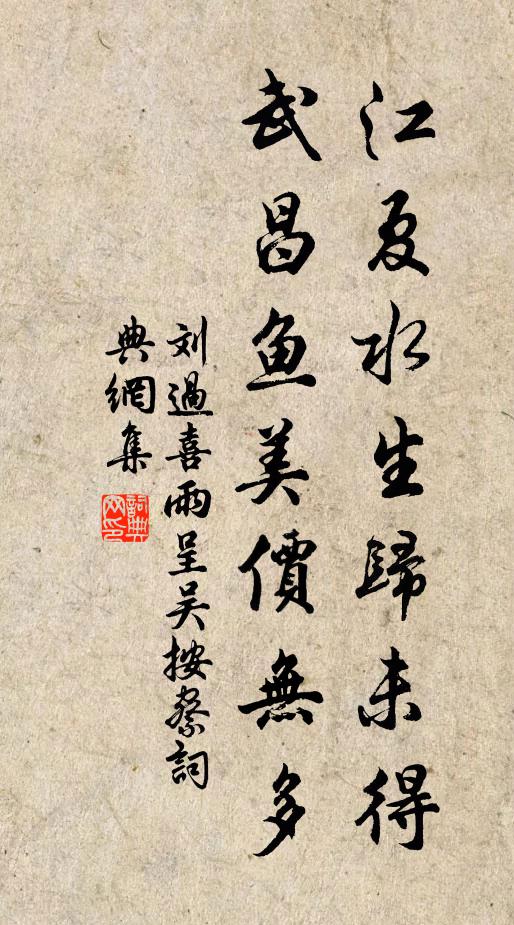 江夏水生歸未得
武昌鱼美價無多
刘過喜雨呈吴按察詞
典網集
詞典网印